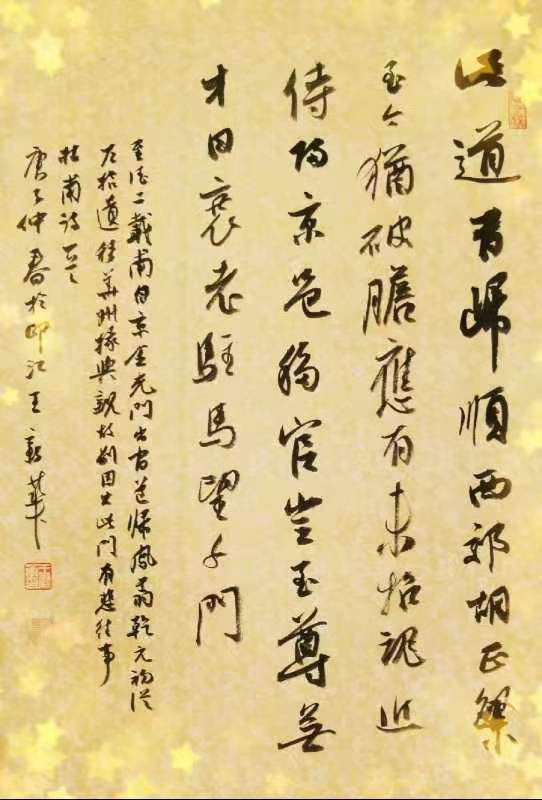 此道昔歸順西郊胡正繁
至今猶破膽應有未招魂近
侍歸京邑移官豈至尊無
才日衰老駐馬望千門
至德二載甫自京金光門出間道歸鳳翔乾元初從
左拾遺移華州掾與親故別因出此門有悲往事
杜甫詩一首
庚子仲春於印江王華